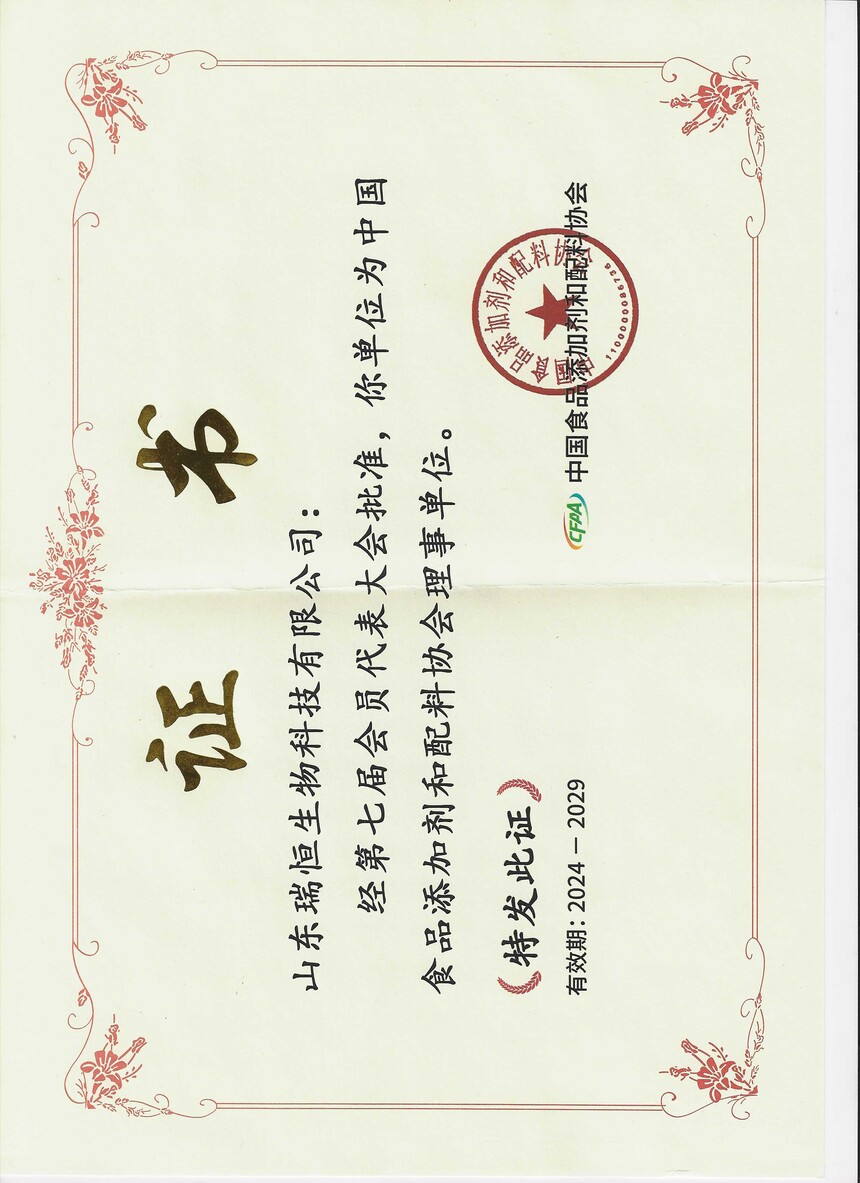 证书
山东瑞恒生物科技有限公司：
经第七届会员代表大会批准，你单位为中国
食品添加剂和配料协会理事单位。
特发此证
有效期：2024－2029
CFAA 中国食品添加剂和配料协会
中国食品添加剂和配料协会
1100000086736